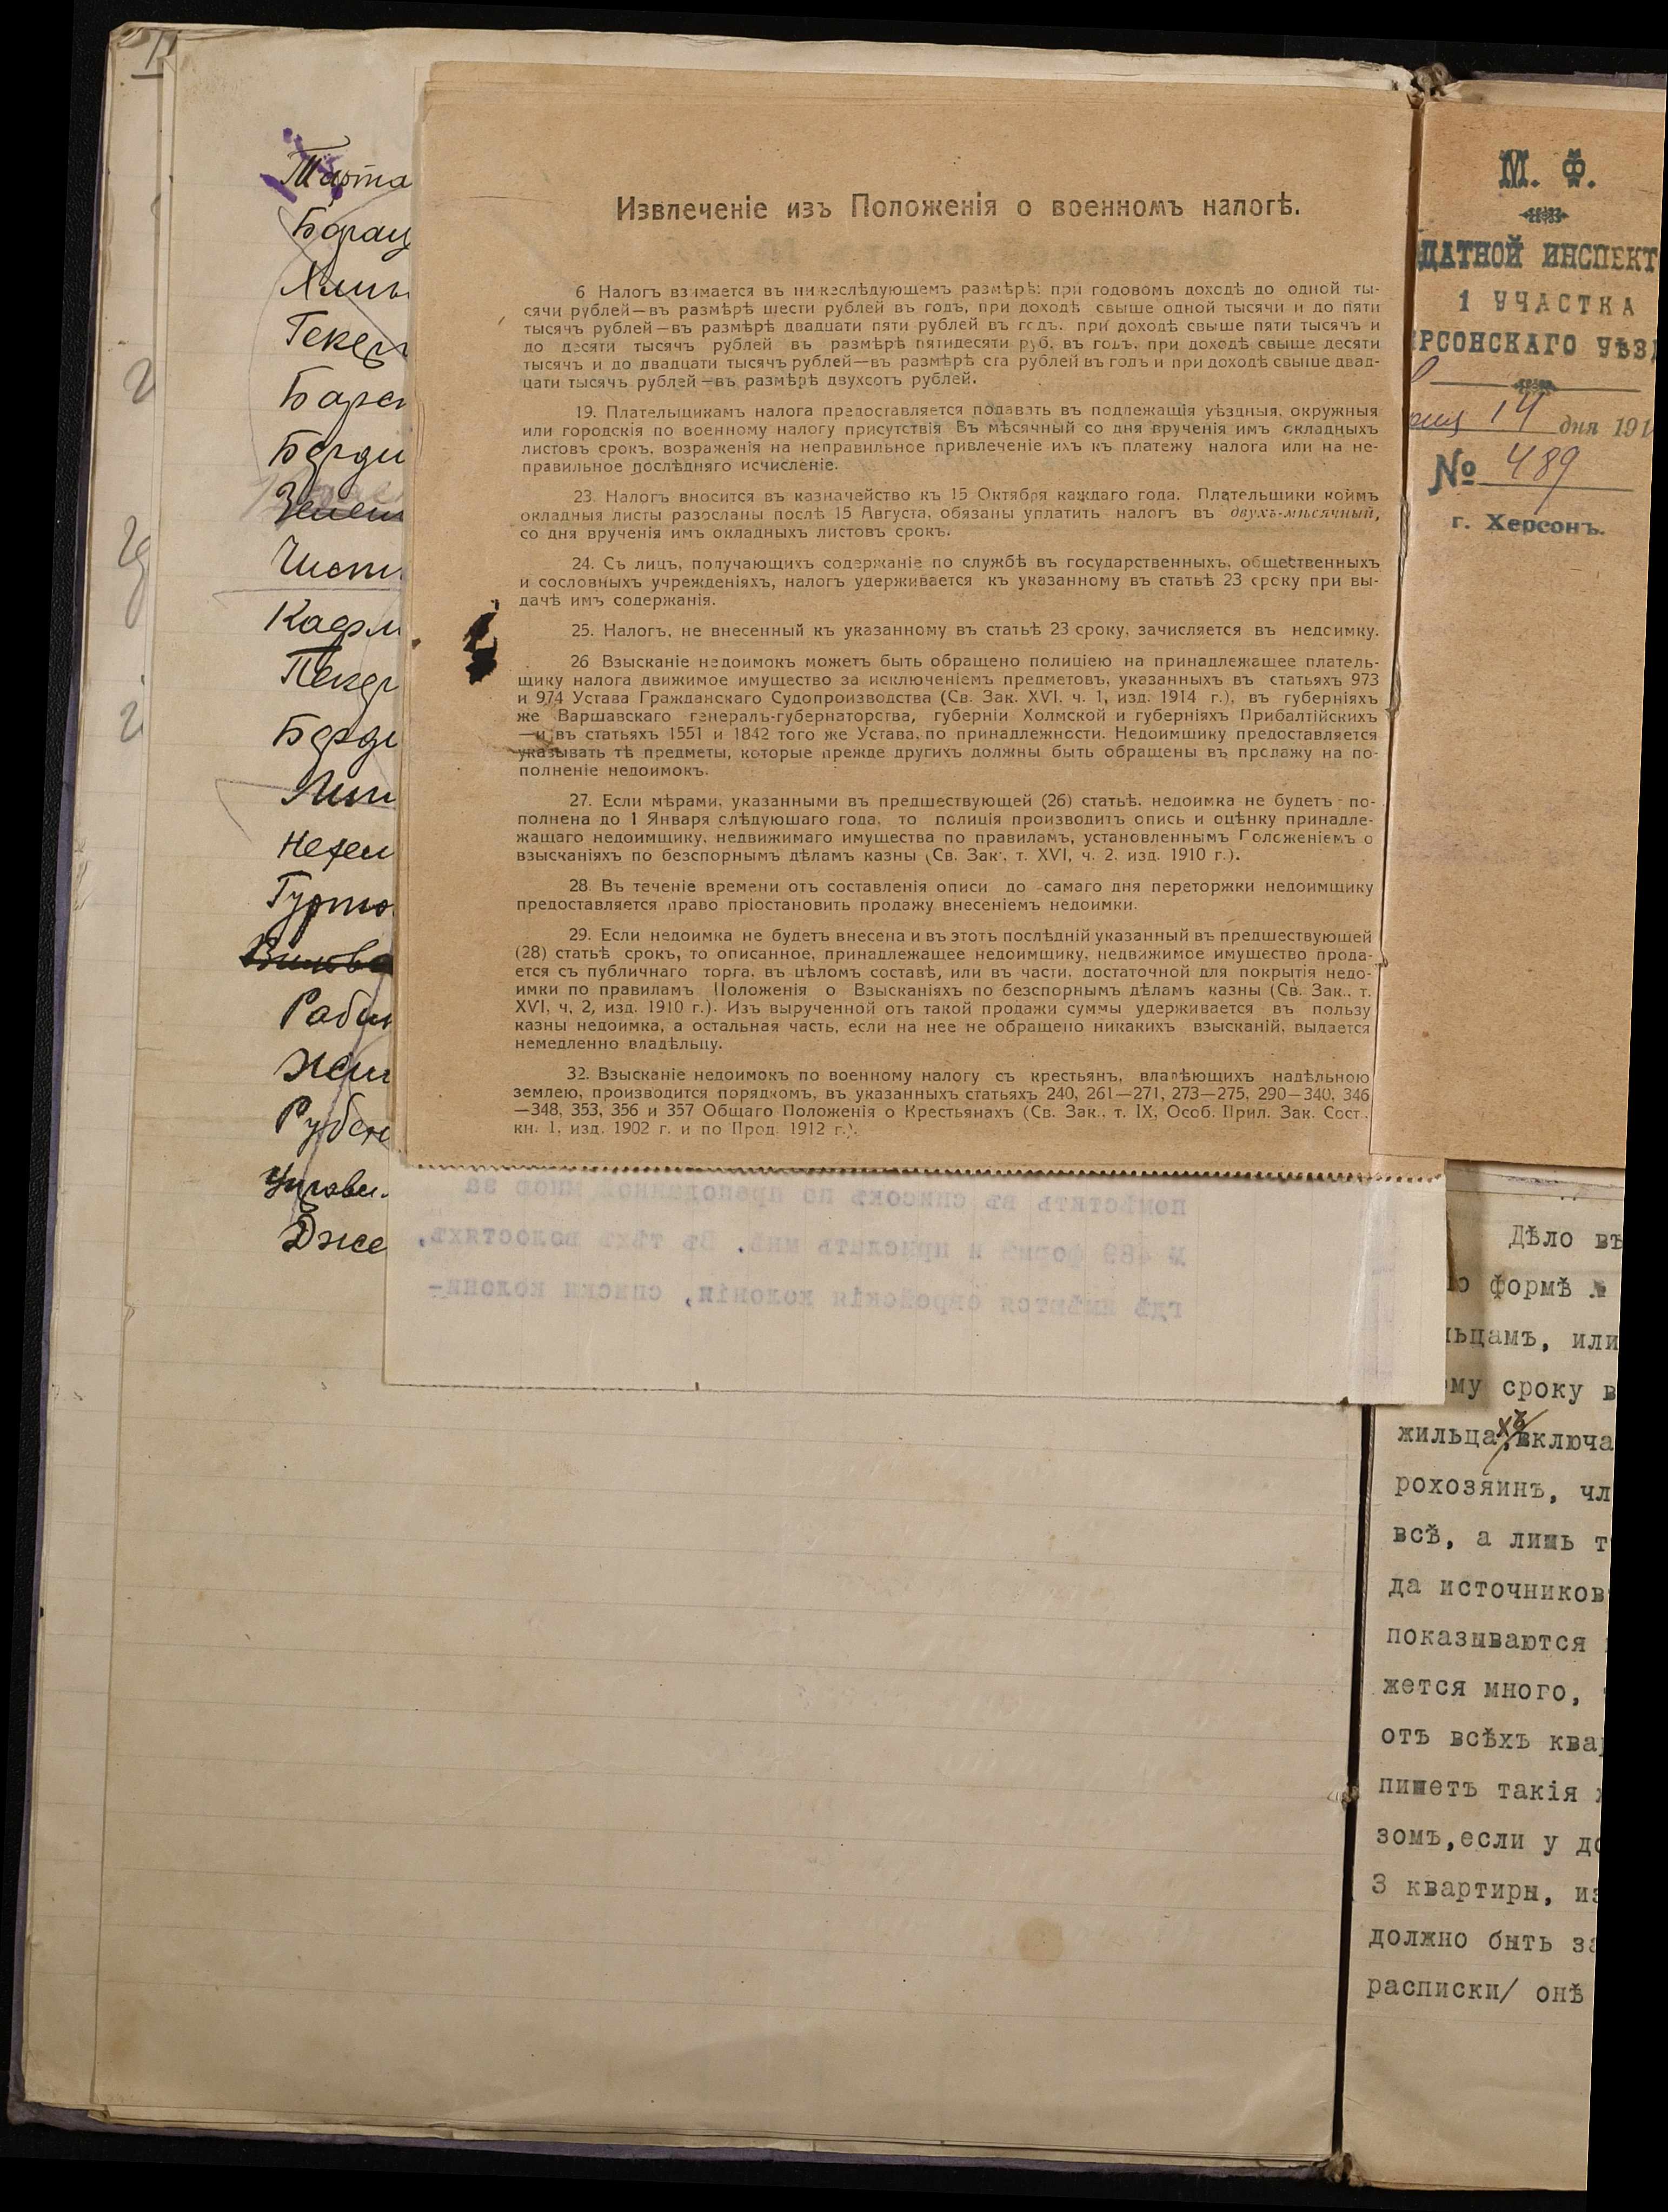 Извлеченіе изъ Положенія о военномъ налогѣ.
6 Налогъ взимается въ нижеслѣдующемъ размѣрѣ: при годовомъ доходѣ до одной ты-
сячи рублей—въ размѣрѣ шести рублей въ годъ, при доходѣ свыше одной тысячи и до пяти
тысячъ рублей—въ размѣрѣ двадцати пяти рублей въ годъ. при доходѣ свыше пяти тысячъ и
до десяти тысячъ рублей въ размѣрѣ пятидесяти руб. въ годъ, при доходѣ свыше десяти
тысячъ и до двадцати тысячъ рублей—въ размѣрѣ ста рублей въ годъ и при доходѣ свыше двад-
цати тысячъ рублей—въ размѣрѣ двухсотъ рублей.
19. Плательщикамъ налога предоставляется подавать въ подлежащія уѣздныя, окружныя
или городскія по военному налогу присутствія въ мѣсячный со дня врученія имъ окладныхъ
листовъ срокъ, возраженія на неправильное привлеченіе ихъ къ платежу налога или на не-
правильное послѣдняго исчисленіе.
23. Налогъ вносится въ казначейство къ 15 Октября каждаго года. Плательщики коимъ
окладныя листы разосланы послѣ 15 Августа, обязаны уплатить налогъ въ двухъ-мѣсячный,
со дня врученія имъ окладныхъ листовъ срокъ.
24. Съ лицъ, получающихъ содержаніе по службѣ въ государственныхъ, общественныхъ
и сословныхъ учрежденіяхъ, налогъ удерживается къ указанному въ статьѣ 23 сроку при вы-
дачѣ имъ содержанія.
25. Налогъ, не внесенный къ указанному въ статьѣ 23 сроку, зачисляется въ недоимку.
26 Взысканіе недоимокъ можетъ быть обращено полиціею на принадлежащее платель-
щику налога движимое имущество за исключеніемъ предметовъ, указанныхъ въ статьяхъ 973
и 974 Устава Гражданскаго Судопроизводства (Св. Зак. XVI, ч. 1, изд. 1914 г.), въ губерніяхъ
же Варшавскаго генералъ-губернаторства, губерніи Холмской и губерніяхъ Прибалтійскихъ
—и въ статьяхъ 1551 и 1842 того же Устава, по принадлежности. Недоимщику предоставляется
указывать тѣ предметы, которые прежде другихъ должны быть обращены въ продажу на по-
полненіе недоимокъ.
27. Если мѣрами, указанными въ предшествующей (26) статьѣ, недоимка не будетъ по-
полнена до 1 Января слѣдующаго года, то полиція производитъ опись и оцѣнку принадле-
жащаго недоимщику, недвижимаго имущества по правиламъ, установленнымъ Положеніемъ о
взысканіяхъ по безспорнымъ дѣламъ казны (Св. Зак., т. XVI, ч. 2, изд. 1910 г.).
28. Въ теченіе времени отъ составленія описи до самаго дня переторжки недоимщику
предоставляется право пріостановить продажу внесеніемъ недоимки.
29. Если недоимка не будетъ внесена и въ этотъ послѣдній указанный въ предшествующей
(28) статьѣ срокъ, то описанное, принадлежащее недоимщику, недвижимое имущество прода-
ется съ публичнаго торга, въ цѣломъ составѣ, или въ части, достаточной для покрытія недо-
имки по правиламъ Положенія о Взысканіяхъ по безспорнымъ дѣламъ казны (Св. Зак., т.
XVI, ч. 2, изд. 1910 г.). Изъ вырученной отъ такой продажи суммы удерживается въ пользу
казны недоимка, а остальная часть, если на нее не обращено никакихъ взысканій, выдается
немедленно владѣльцу.
32. Взысканіе недоимокъ по военному налогу съ крестьянъ, владѣющихъ надѣльною
землею, производится порядкомъ, въ указанныхъ статьяхъ 240, 261—271, 273—275, 290—340, 346
—348, 353, 356 и 357 Общаго Положенія о Крестьянахъ (Св. Зак., т. IX, Особ. Прил. Зак. Сост.,
кн. 1, изд. 1902 г. и по Прод. 1912 г.).
М. Ф.
ДАТНОЙ ИНСПЕКТ
1 УЧАСТКА
РСОНСКАГО УѢЗД
14 дня 191
№ 489
г. Херсонъ.
Борац
Текер
Барс
Берди
Чист
Кафл
Пекер
Берди
Лип
Нефел
Гурто
Раби
Рубен
Дже
помѣстить въ списокъ по преподанной мною за
№ 489 формѣ и прислать мнѣ. Въ тѣхъ волостяхъ,
гдѣ имѣются еврейскія колоніи, списки колони-
Дѣло въ
формѣ №
льцамъ, или
ому сроку в
жильцахъ, включа
рохозяинъ, чл
всѣ, а лишь т
да источников
показываются
жется много,
отъ всѣхъ ква
пишетъ такія
зомъ,если у до
3 квартиры, из
должно быть за
расписки/ онѣ